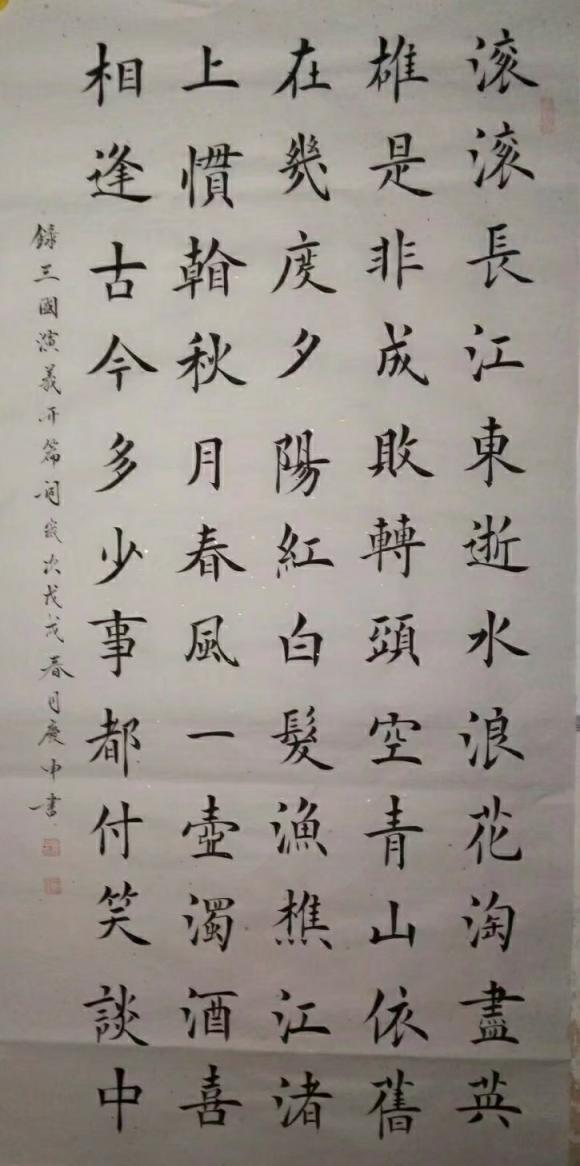 滚滚長江東逝水浪花淘盡英
雄是非成敗轉頭空青山依舊
在幾度夕陽紅白髮漁樵江渚
上慣秋月春風一壺濁酒喜
相逢古今多少事都付笑談中
錄三國演義开篇詞歲次戊戌春月庚中書